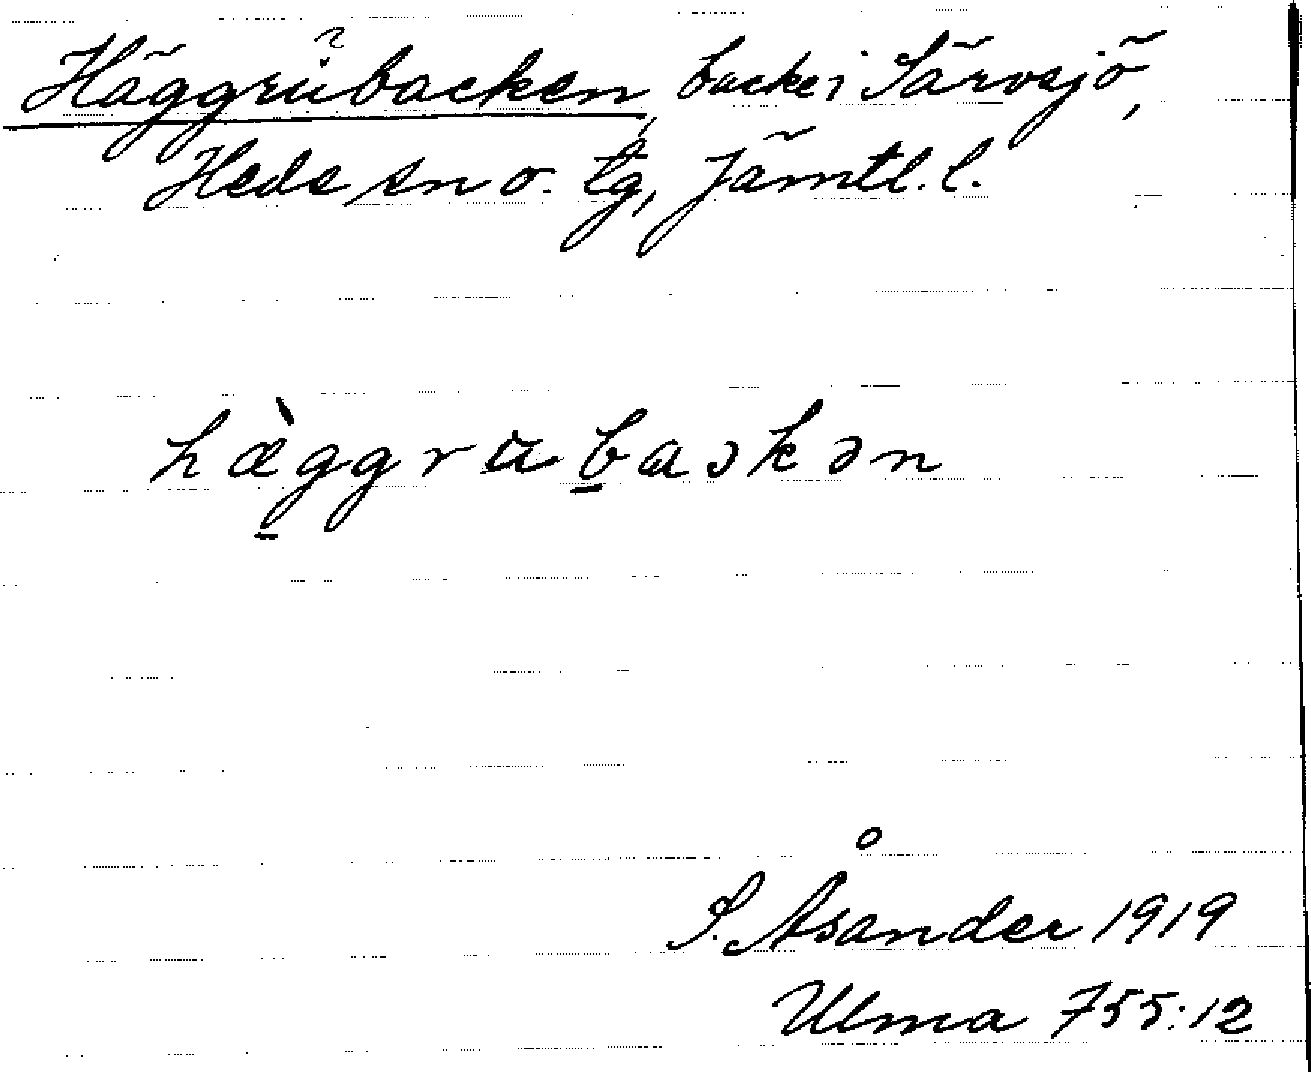 Häggrubacken, backe i Särvsjö,
Heds sn o. tg, Jämtl. l.
hæ̀ggrubaskən
S. Åsander 1919
Ulma 755:12